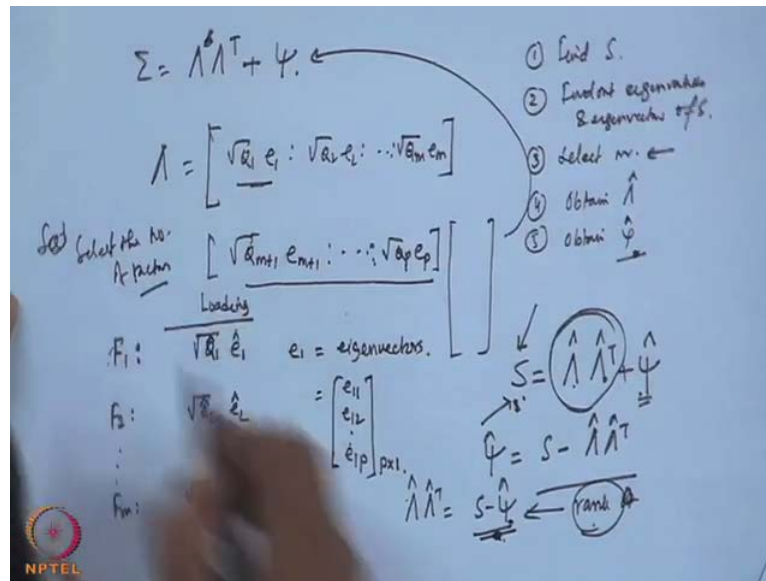 Σ = Λ Λᵀ + Ψ.
Λ = [ √λ₁ e₁ : √λ₂ e₂ : ... : √λₘ eₘ ]
Select the no. of factors
[ √λₘ₊₁ eₘ₊₁ : ... : √λₚ eₚ ]
Loading
F₁ : √λ₁ ê₁
F₂ : ê₂
:
Fₘ :
e₁ = eigenvectors.
= [ e₁₁
e₁₂
:
e₁ₚ ] p×1.
① Find S.
② Find out eigenvalues
& eigenvector of S.
③ Select m. ←
④ Obtain Λ̂
⑤ Obtain Ψ̂
S = Λ̂ Λ̂ᵀ + Ψ̂
Ψ̂ = S - Λ̂ Λ̂ᵀ
Λ̂ Λ̂ᵀ = S - Ψ̂ ← rank
NPTEL